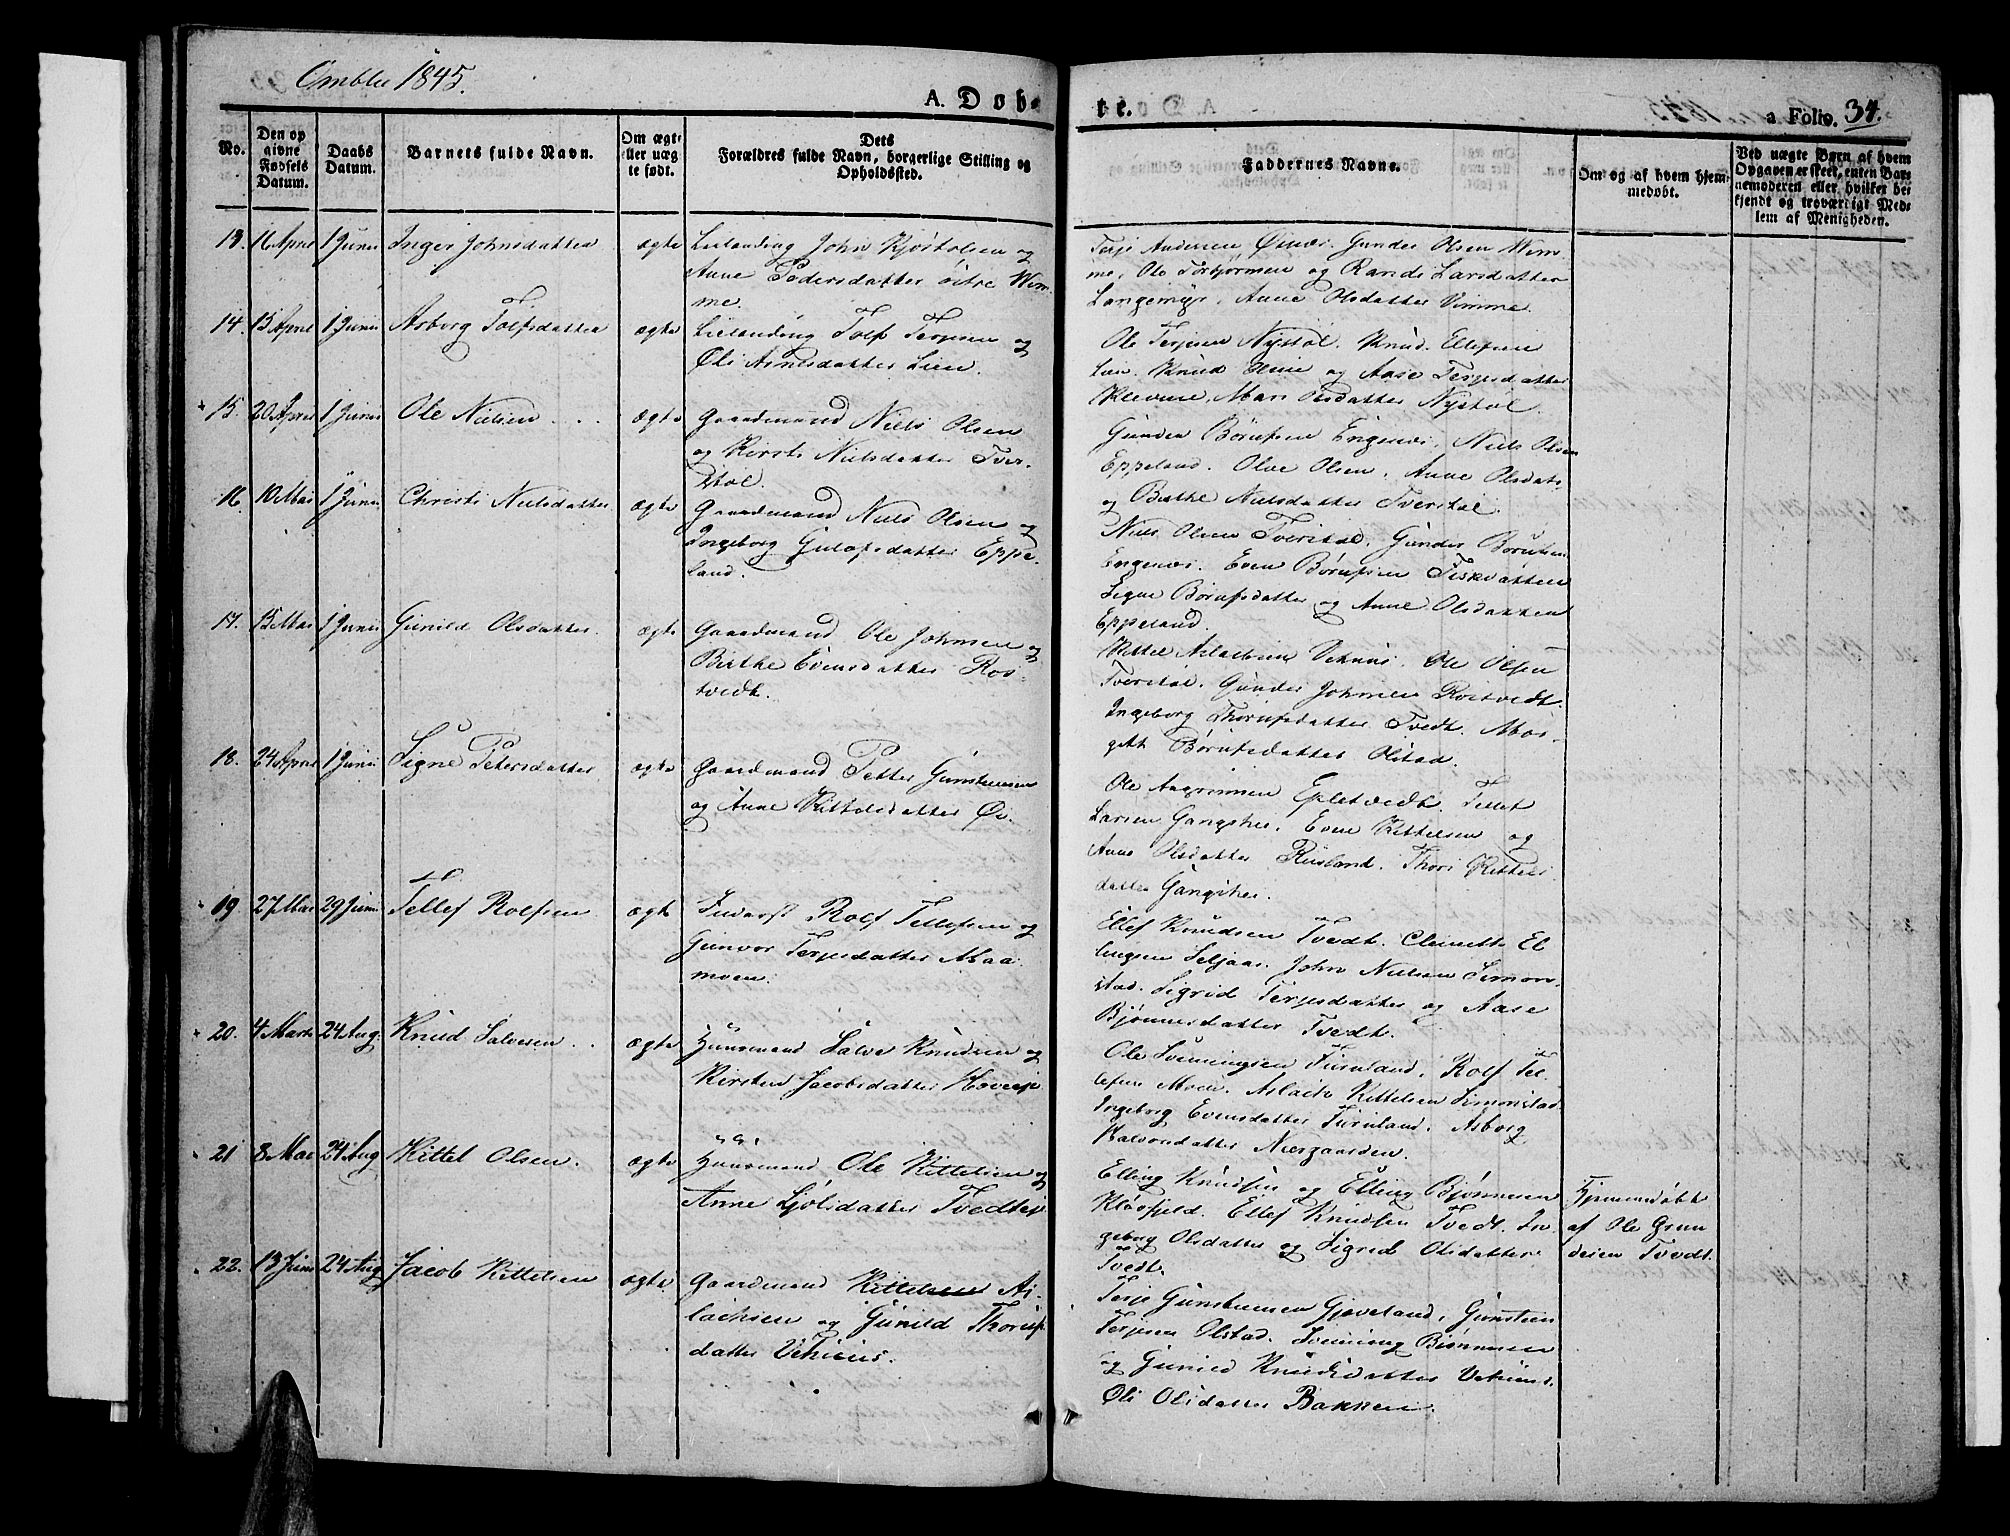 Omblie 1845.
A. Døb-
te.
a Folio. 34.
No.
Den op
givne
Fødsels
Datum.
Daabs
Datum.
Barnets fulde Navn.
Om ægt-
eller uæg
te født.
Dets
Forældres fulde Navn, borgerlige Stilling og
Opholdssted.
Faddernes Navne.
Om og af hvem hjem-
medøbt.
Ved uægte Børn af hvem
Opgaven er skeet, enten Bar-
nemoderen eller, hvilket be
kjendt og troværdigt Med-
lem af Menigheden.
13. 16 April 1 Juni Inger Johnsdatter ægte Leilænding John Kjøstolsen og
Anne Pedersdatter Wim-
me.
Terje Andersen Gunder Olsen Wim-
me, Ole Torbjørnsen og Randi Larsdatter
Langemyr, Anne Olsdatter Vimme.
14. 15 April 1 Juni Asborg Tolfsdatter ægte Leilænding Tolf Terjesen og
Øli Asulsdatter Lien.
Ole Terjesen Nystøl. Knud Ellefsen
Lien. Knud Olsen og Aase Terjesdatter
Klevene, Mari Olsdatter Nystøl.
15. 20 April 1 Juni Ole Nielsen ægte Gaardmand Niels Olsen
og Kirsti Nielsdatter Tver-
støl.
Gunder Børufsen Engenæs, Niels Olsen
Eppeland. Olve Olsen, Anne Olsdatr
og Birthe Nielsdatter Tverstøl.
16. 10 Mai 1 Juni Christi Nielsdatter ægte Gaardmand Niels Olsen og
Ingeborg Gulofsdatter Eppe-
land.
Niels Olsen Tverstøl, Gunder Børufsen
Engenæs. Even Børufsen Fiskvatten
Signe Børufsdatter og Anne Olsdatter
Eppeland.
17. 15 Mai 1 Juni Gunild Olsdatter ægte Gaardmand Ole Johnsen og
Birthe Evensdatter Ros-
tvedt.
Kittel Aslaksen Vehuus. Ole Olsen
Tverstøl. Gunder Johnsen Rostvedt.
Ingeborg Thorufsdatter Tvedt. Mar-
gith Børufsdatter Olstad.
18. 24 April 1 Juni Signe Petersdatter ægte Gaardmand Petter Gunstensen
og Anne Kittelsdatter Øi.
Ole Angrimsen Epletvedt. Tellef
Larsen Gangshei. Even Kittelsen og
Anne Olsdatter Risland. Thori Kittels-
datter Gangshei.
19 27 Mai 29 Juni Tellef Rolfsen ægte Inderst Rolf Tellefsen og
Gunvor Terjesdatter Maa-
moen.
Ellef Knudsen Tvedt. Clemet El
lingsen Seljaas. John Nielsen Simon-
stad. Sigrid Terjesdatter og Aase
Bjønnesdatter Tvedt.
20. 4 Marts 24 Aug. Knud Salvesen ægte Huusmand Salve Knudsen og
Kirsten Jacobsdatter
Ole Svenningsen Furuland. Rolf Tel-
lefsen Moen. Aslach Kittelsen Simonstad
Ingeborg Evensdatter Furuland, Asborg
Halvorsdatter Næsgaarden.
21 8 Mai 24 Aug Kittel Olsen. ægte Huusmand Ole Kittelsen og
Anne Ljølsdatter Tvedtei
Elling Knudsen og Elling Bjønnesen
Kløvfjeld. Ellef Knudsen Tvedt. In
geborg Olsdatter og Sigrid Olsdatter
Tvedt.
Hjemmedøbt
af Ole Grun
desen Tvedt.
22. 13 Juni 24 Aug Jacob Kittelsen ægte Gaardmand Kittelsen As-
lachsen og Gunild Thoruf
datter Vehuus.
Terje Gunstensen Gjeveland, Gunsten
Terjesen Olstad. Svenning Bjønnesen
og Gunild Knudsdatter Vehuus.
Øli Olsdatter Bakken.